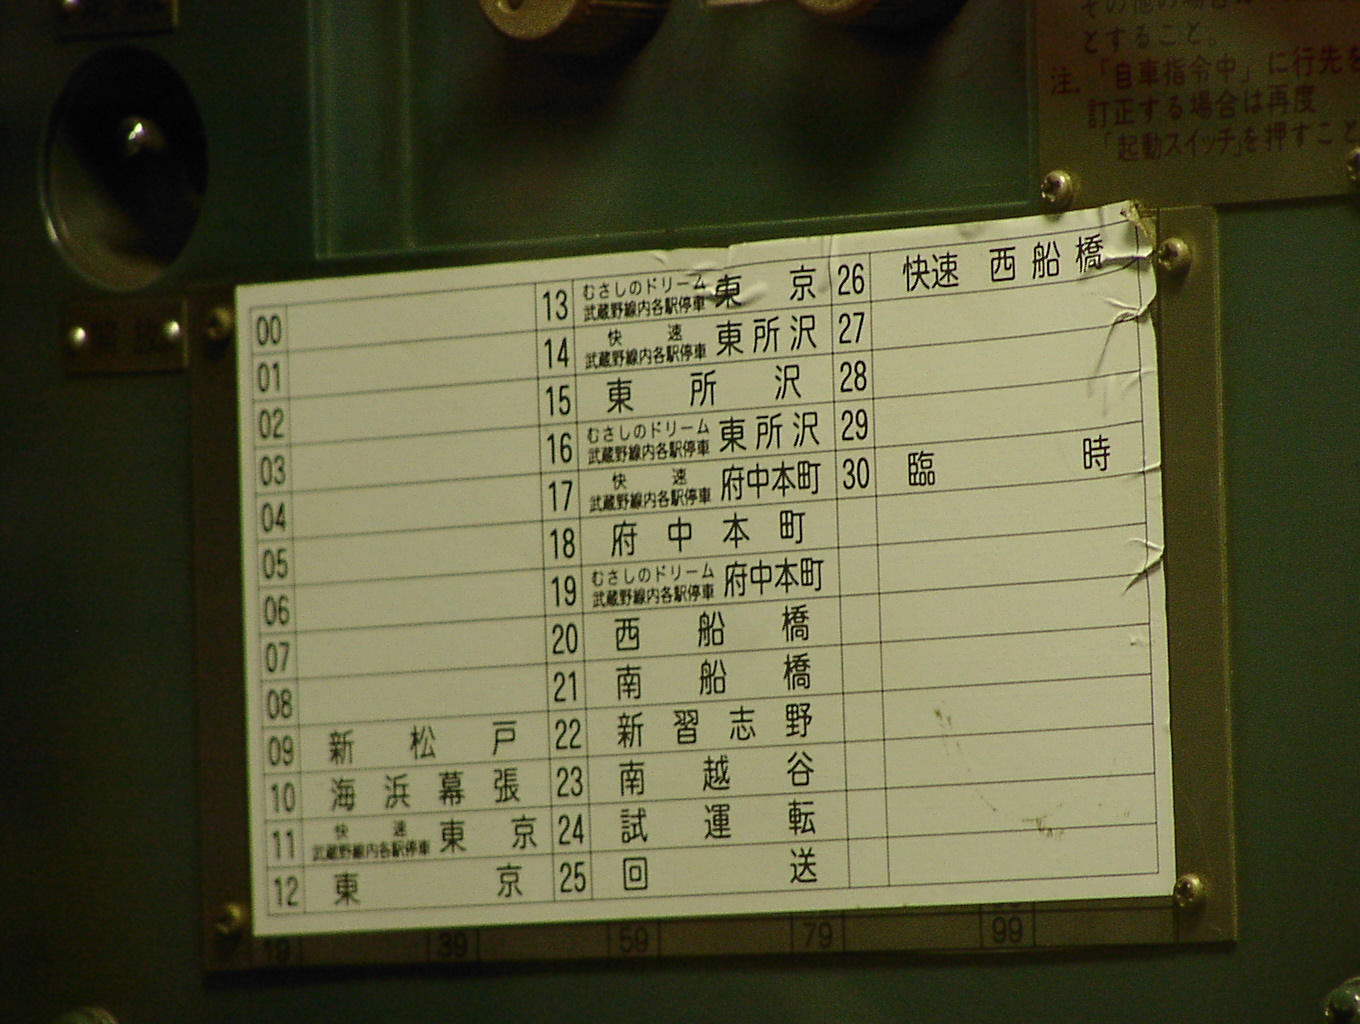 とすること。
注.「自車指令中」に行先を
訂正する場合は再度
「起動スイッチ」を押すこと
00
01
02
03
04
05
06
07
08
09 新松戸
10 海浜幕張
11 快速 武蔵野線内各駅停車 東京
12 東京
13 むさしのドリーム 武蔵野線内各駅停車 東京
14 快速 武蔵野線内各駅停車 東所沢
15 東所沢
16 むさしのドリーム 武蔵野線内各駅停車 東所沢
17 快速 武蔵野線内各駅停車 府中本町
18 府中本町
19 むさしのドリーム 武蔵野線内各駅停車 府中本町
20 西船橋
21 南船橋
22 新習志野
23 南越谷
24 試運転
25 回送
26 快速 西船橋
27
28
29
30 臨時
19 39 59 79 99